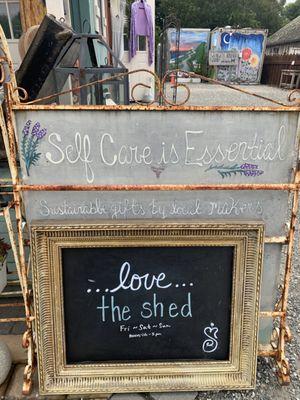 Self Care is Essential
Sustainable gifts by local Makers
...love...
the shed
Fri ~ Sat ~ Sun